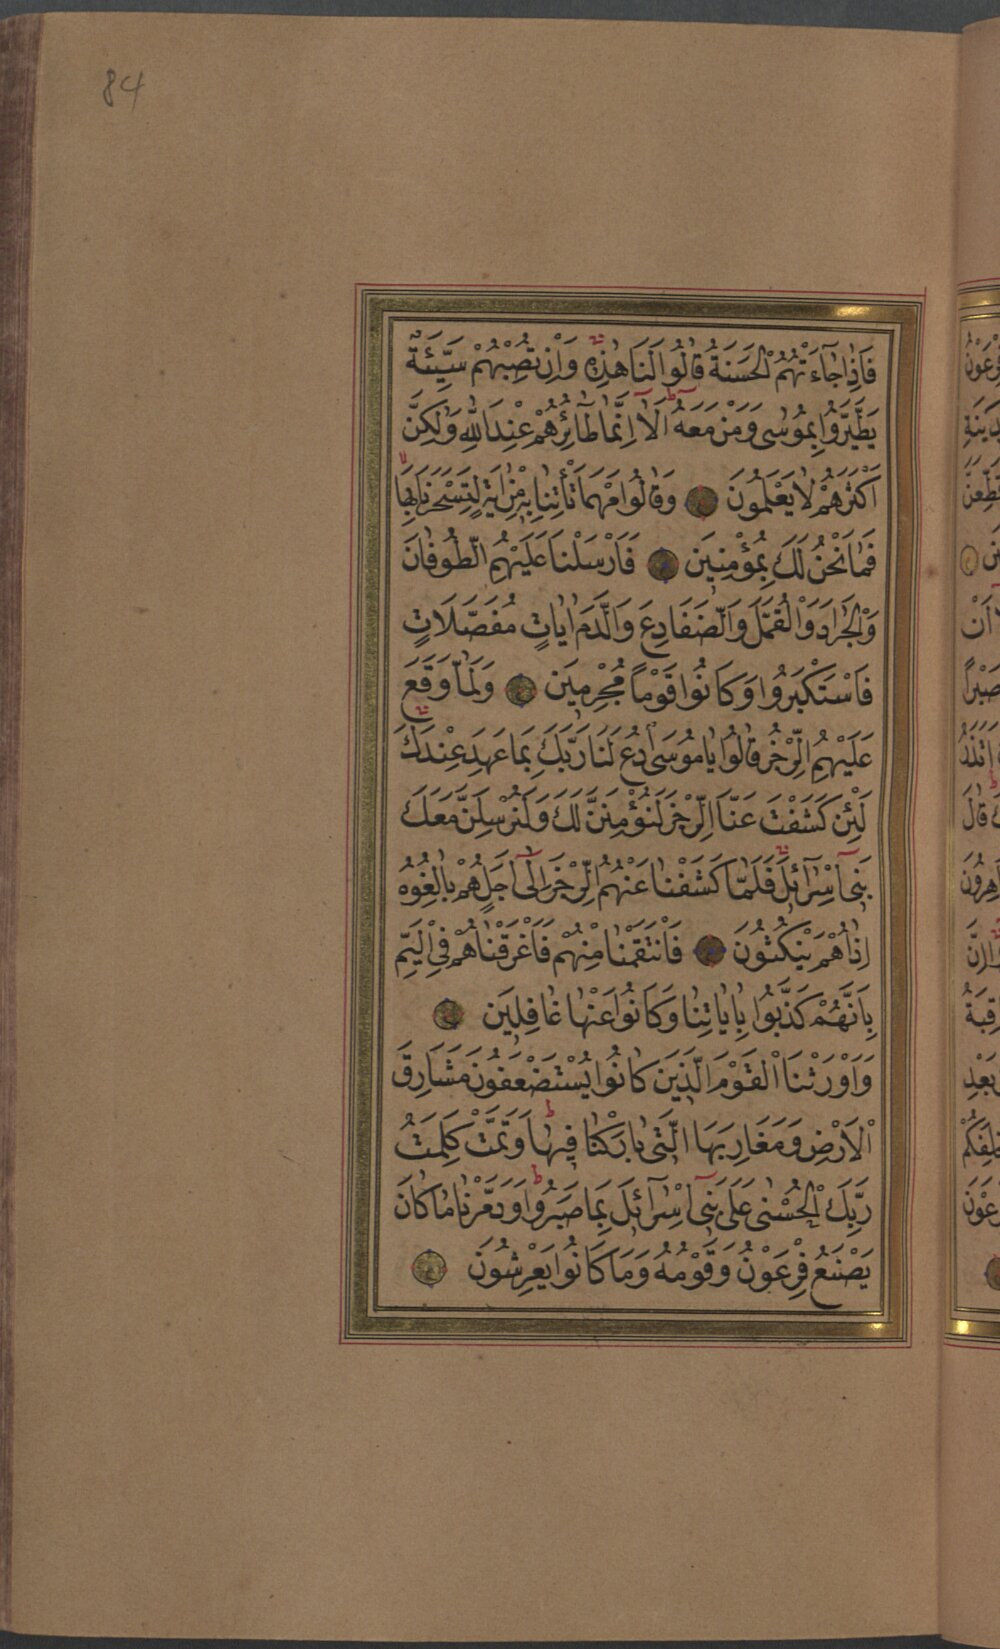 84
فَاِذَا جَآءَتْهُمُ الْحَسَنَةُ قَالُوا لَنَا هٰذِهٖ وَاِنْ تُصِبْهُمْ سَيِّئَةٌ
يَطَّيَّرُوا بِمُوسٰى وَمَنْ مَعَهُ اَلَآ اِنَّمَا طَآئِرُهُمْ عِنْدَ اللّٰهِ وَلٰكِنَّ
اَكْثَرَهُمْ لَا يَعْلَمُونَ وَقَالُوا مَهْمَا تَأْتِنَا بِهٖ مِنْ اٰيَةٍ لِتَسْحَرَنَا بِهَا
فَمَا نَحْنُ لَكَ بِمُؤْمِنِينَ فَاَرْسَلْنَا عَلَيْهِمُ الطُّوفَانَ
وَالْجَرَادَ وَالْقُمَّلَ وَالضَّفَادِعَ وَالدَّمَ اٰيَاتٍ مُفَصَّلَاتٍ
فَاسْتَكْبَرُوا وَكَانُوا قَوْمًا مُجْرِمِينَ وَلَمَّا وَقَعَ
عَلَيْهِمُ الرِّجْزُ قَالُوا يَا مُوسَى ادْعُ لَنَا رَبَّكَ بِمَا عَهِدَ عِنْدَكَ
لَئِنْ كَشَفْتَ عَنَّا الرِّجْزَ لَنُؤْمِنَنَّ لَكَ وَلَنُرْسِلَنَّ مَعَكَ
بَنِىٓ اِسْرَآئِلَ فَلَمَّا كَشَفْنَا عَنْهُمُ الرِّجْزَ اِلٰٓى اَجَلٍ هُمْ بَالِغُوهُ
اِذَا هُمْ يَنْكُثُونَ فَانْتَقَمْنَا مِنْهُمْ فَاَغْرَقْنَاهُمْ فِى الْيَمِّ
بِاَنَّهُمْ كَذَّبُوا بِاٰيَاتِنَا وَكَانُوا عَنْهَا غَافِلِينَ
وَاَوْرَثْنَا الْقَوْمَ الَّذِينَ كَانُوا يُسْتَضْعَفُونَ مَشَارِقَ
الْاَرْضِ وَمَغَارِبَهَا الَّتِى بَارَكْنَا فِيهَا وَتَمَّتْ كَلِمَتُ
رَبِّكَ الْحُسْنٰى عَلٰى بَنِىٓ اِسْرَآئِلَ بِمَا صَبَرُوا وَدَمَّرْنَا مَا كَانَ
يَصْنَعُ فِرْعَوْنُ وَقَوْمُهُ وَمَا كَانُوا يَعْرِشُونَ